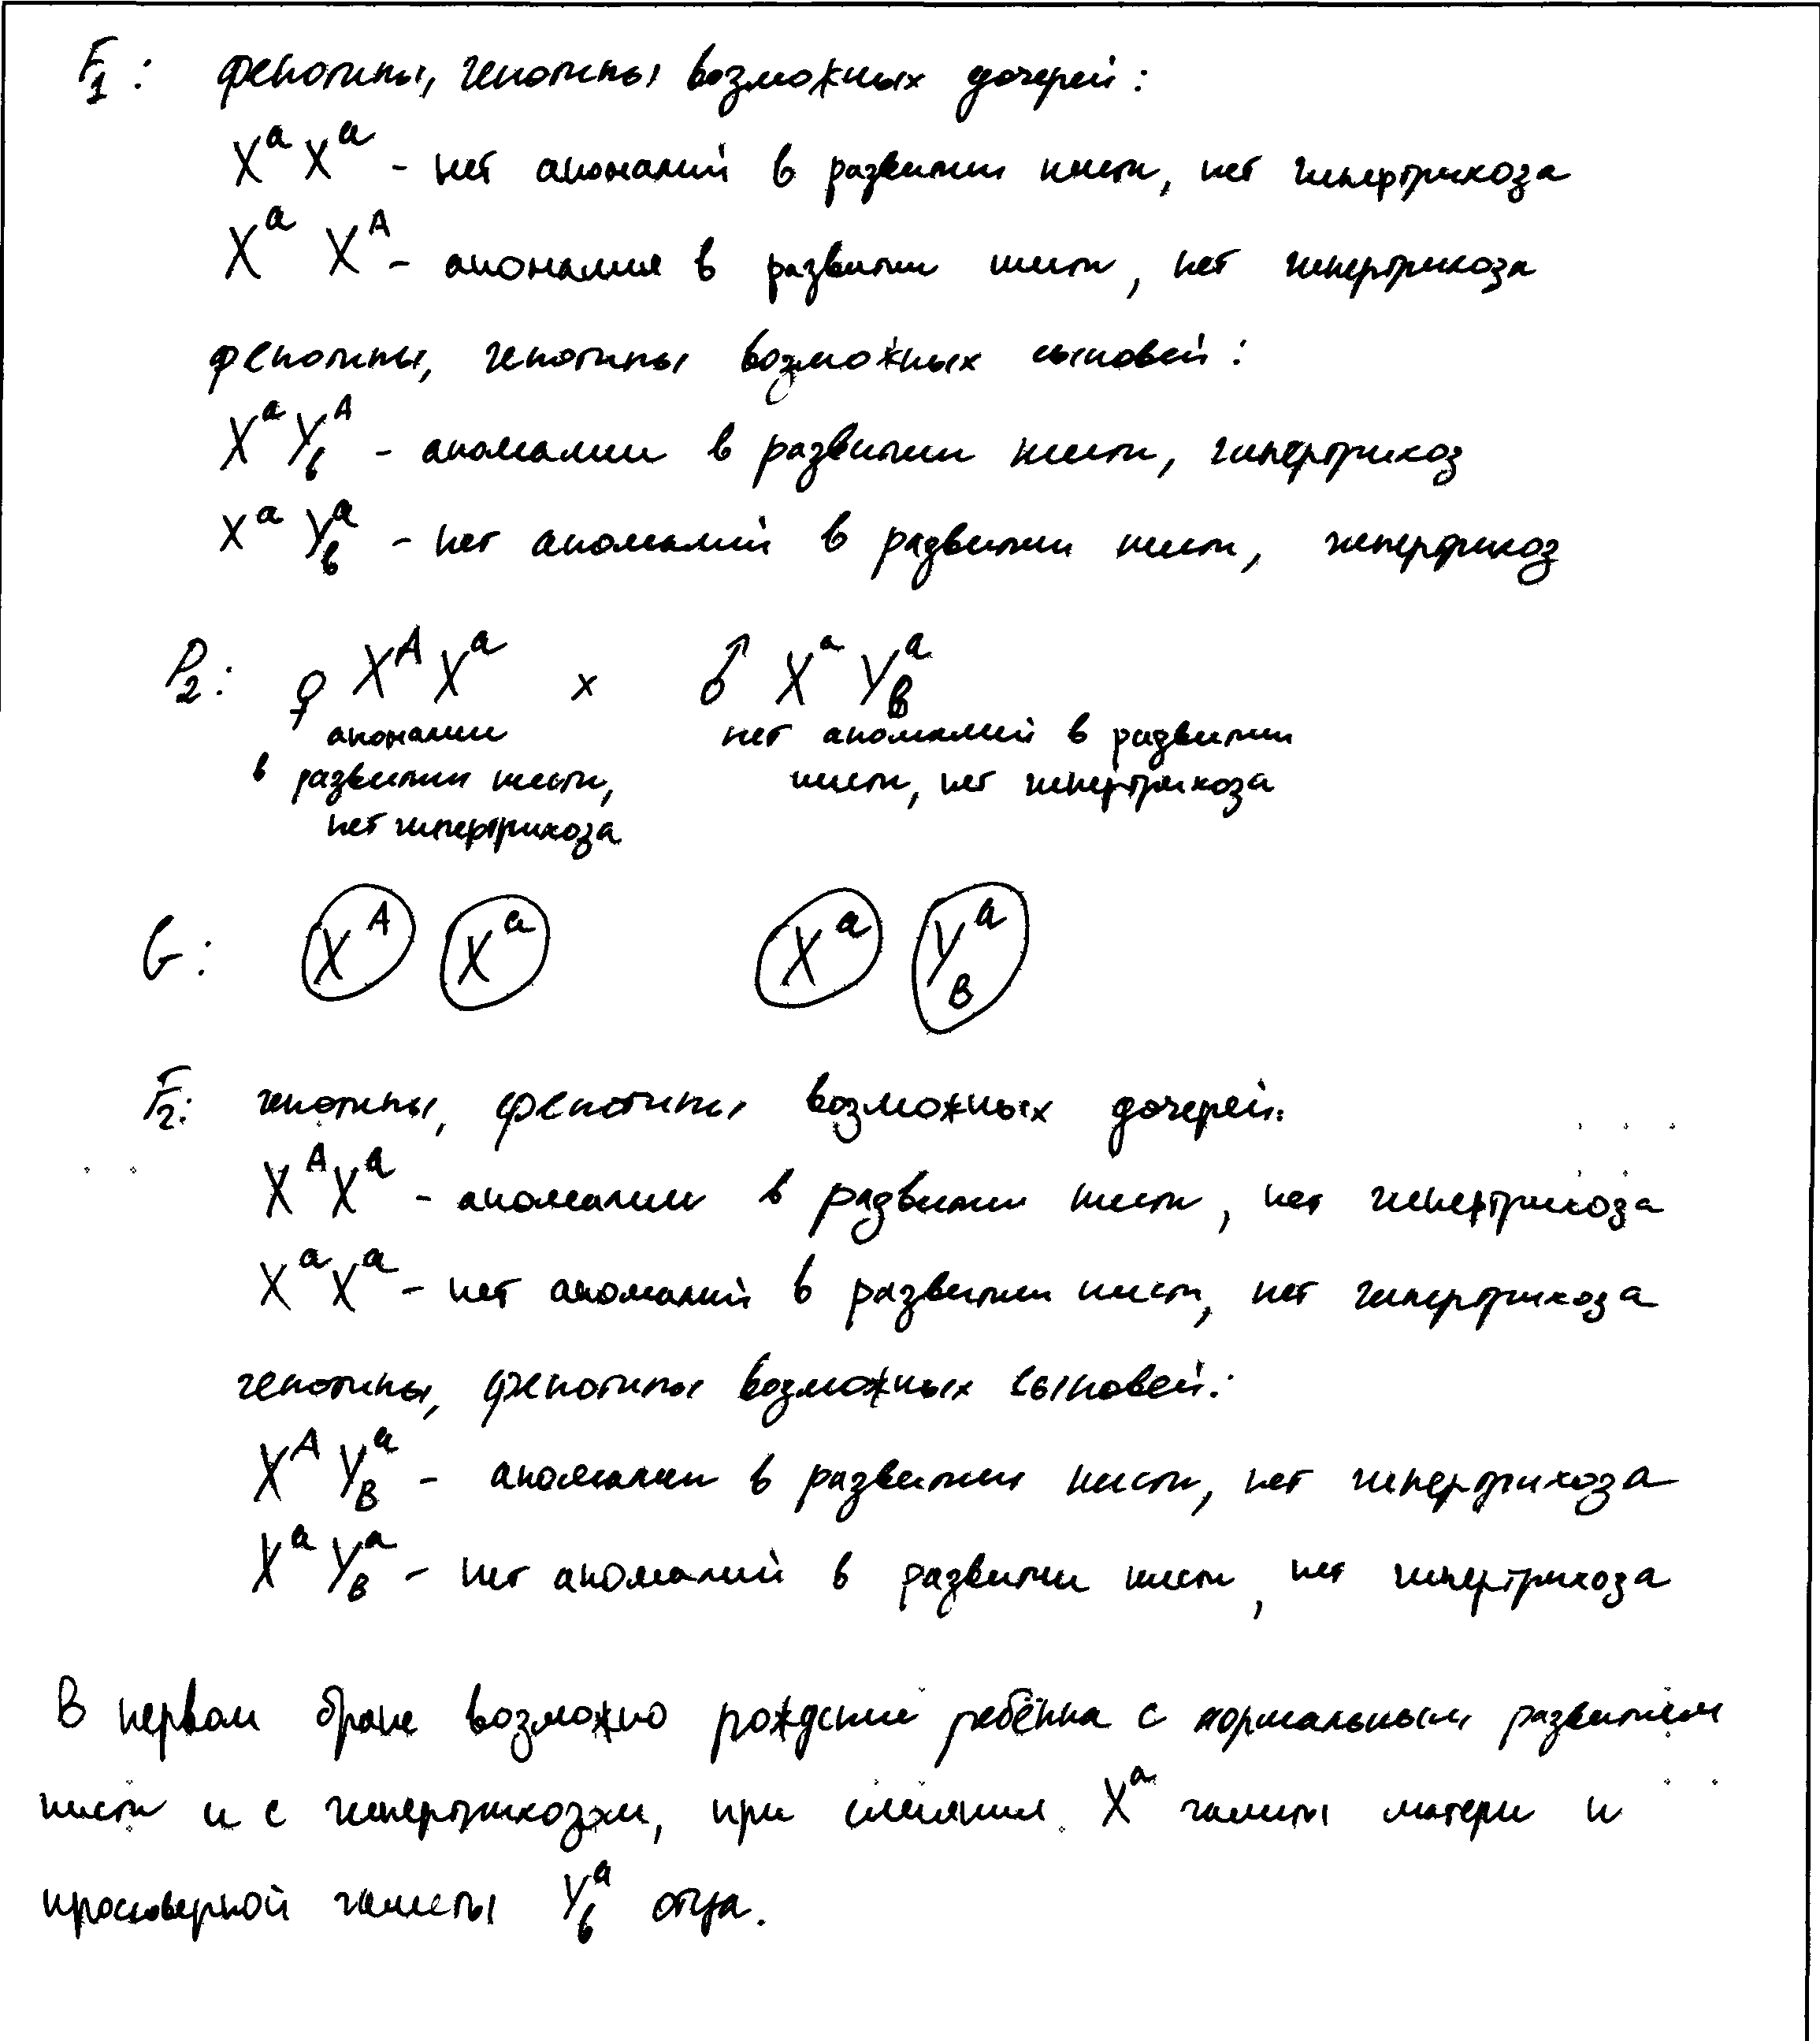 F₁: фенотипы, генотипы возможных дочерей:
XᵃXᵃ - нет аномалий в развитии кисти, нет гипертрихоза
Xᵃ Xᴬ - аномалия в развитии кисти, нет гипертрихоза
фенотипы, генотипы возможных сыновей:
XᵃYᴬb - аномалии в развитии кисти, гипертрихоз
Xᵃ Yᵃb - нет аномалий в развитии кисти, гипертрихоз
P₂: ♀ XᴬXᵃ x ♂ Xᵃ YᵃB
аномалии нет аномалий в развитии
в развитии кисти, кисти, нет гипертрихоза
нет гипертрихоза
G: Xᴬ Xᵃ Xᵃ YᵃB
F₂: генотипы, фенотипы возможных дочерей:
XᴬXᵃ - аномалии в развитии кисти, нет гипертрихоза
XᵃXᵃ - нет аномалий в развитии кисти, нет гипертрихоза
генотипы, фенотипы возможных сыновей:
Xᴬ YᵃB - аномалии в развитии кисти, нет гипертрихоза
Xᵃ YᵃB - нет аномалий в развитии кисти, нет гипертрихоза
В первом браке возможно рождение ребёнка с нормальным развитием
кисти и с гипертрихозом, при слиянии Xᵃ гаметы матери и
кроссоверной гаметы Yᵃb отца.